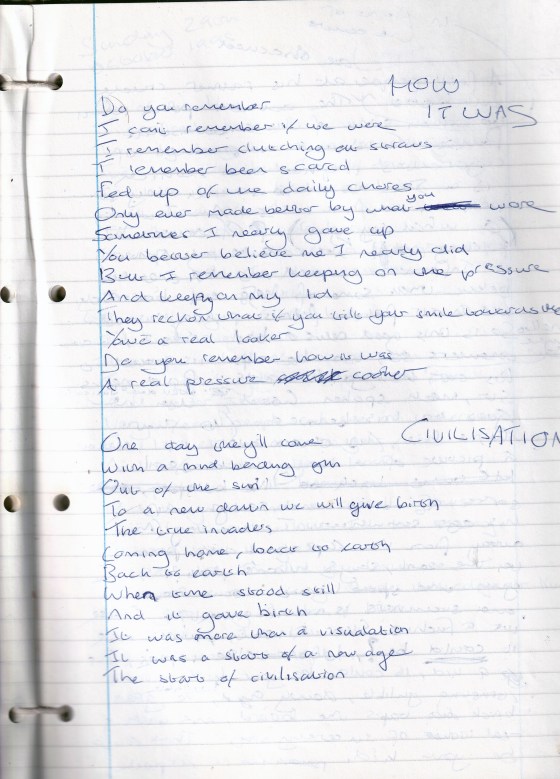 HOW
IT WAS
Do you remember
I can't remember if we were
I remember clutching at straws
I remember been scared
Fed up of the daily chores
Only ever made better by what you wore
Sometimes I nearly gave up
You better believe me I nearly did
But I remember keeping on the pressure
And keeping on my lid
They reckon that if you tilt your smile towards the
You're a real looker
Do you remember how it was
A real pressure cooker
CIVILISATION
One day they'll come
With a mind bending gun
Out of the sun
To a new dawn we will give birth
The true invaders
Coming home, back to earth
Back to earth
When time stood still
And it gave birth
It was more than a visualation
It was a start of a new age
The start of civilisation